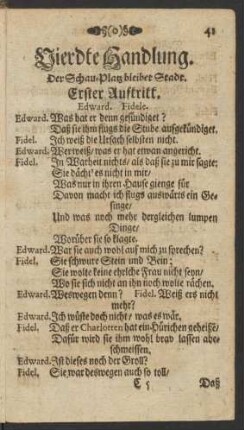 41
Vierdte Handlung.
Der Schau-Platz bleibet Stadt.
Erster Auftritt.
Edward. Fidele.
Edward. Was hat er denn gesündiget?
Daß sie ihm flugs die Stube aufgekündiget.
Fidel. Ich weiß die Ursach selbsten nicht.
Edward. Wer weiß/ was er hat etwan angericht.
Fidel. In Warheit nichts/ als daß sie zu mir sagte:
Sie dächt' es nicht in mir/
Was nur in ihren Hause gienge für
Davon macht ich flugs auswärts ein Ge-
singe/
Und was noch mehr dergleichen lumpen
Dinge/
Worüber sie so klagte.
Edward. War sie auch wohl auf mich zu sprechen?
Fidel. Sie schwure Stein und Bein;
Sie wolte keine ehrliche Frau nicht seyn/
Wo sie sich nicht an ihn noch wolte rächen.
Edward. Weswegen denn? Fidel. Weiß ers nicht
mehr?
Edward. Ich wüste doch nicht/ was es wär.
Fidel. Daß er Charlotten hat ein Hürichen geheiße/
Dafür wird sie ihm wohl brav lassen abe-
schmeissen.
Edward. Ist dieses noch der Groll?
Fidel. Sie war deswegen auch so toll/
C 5 Daß